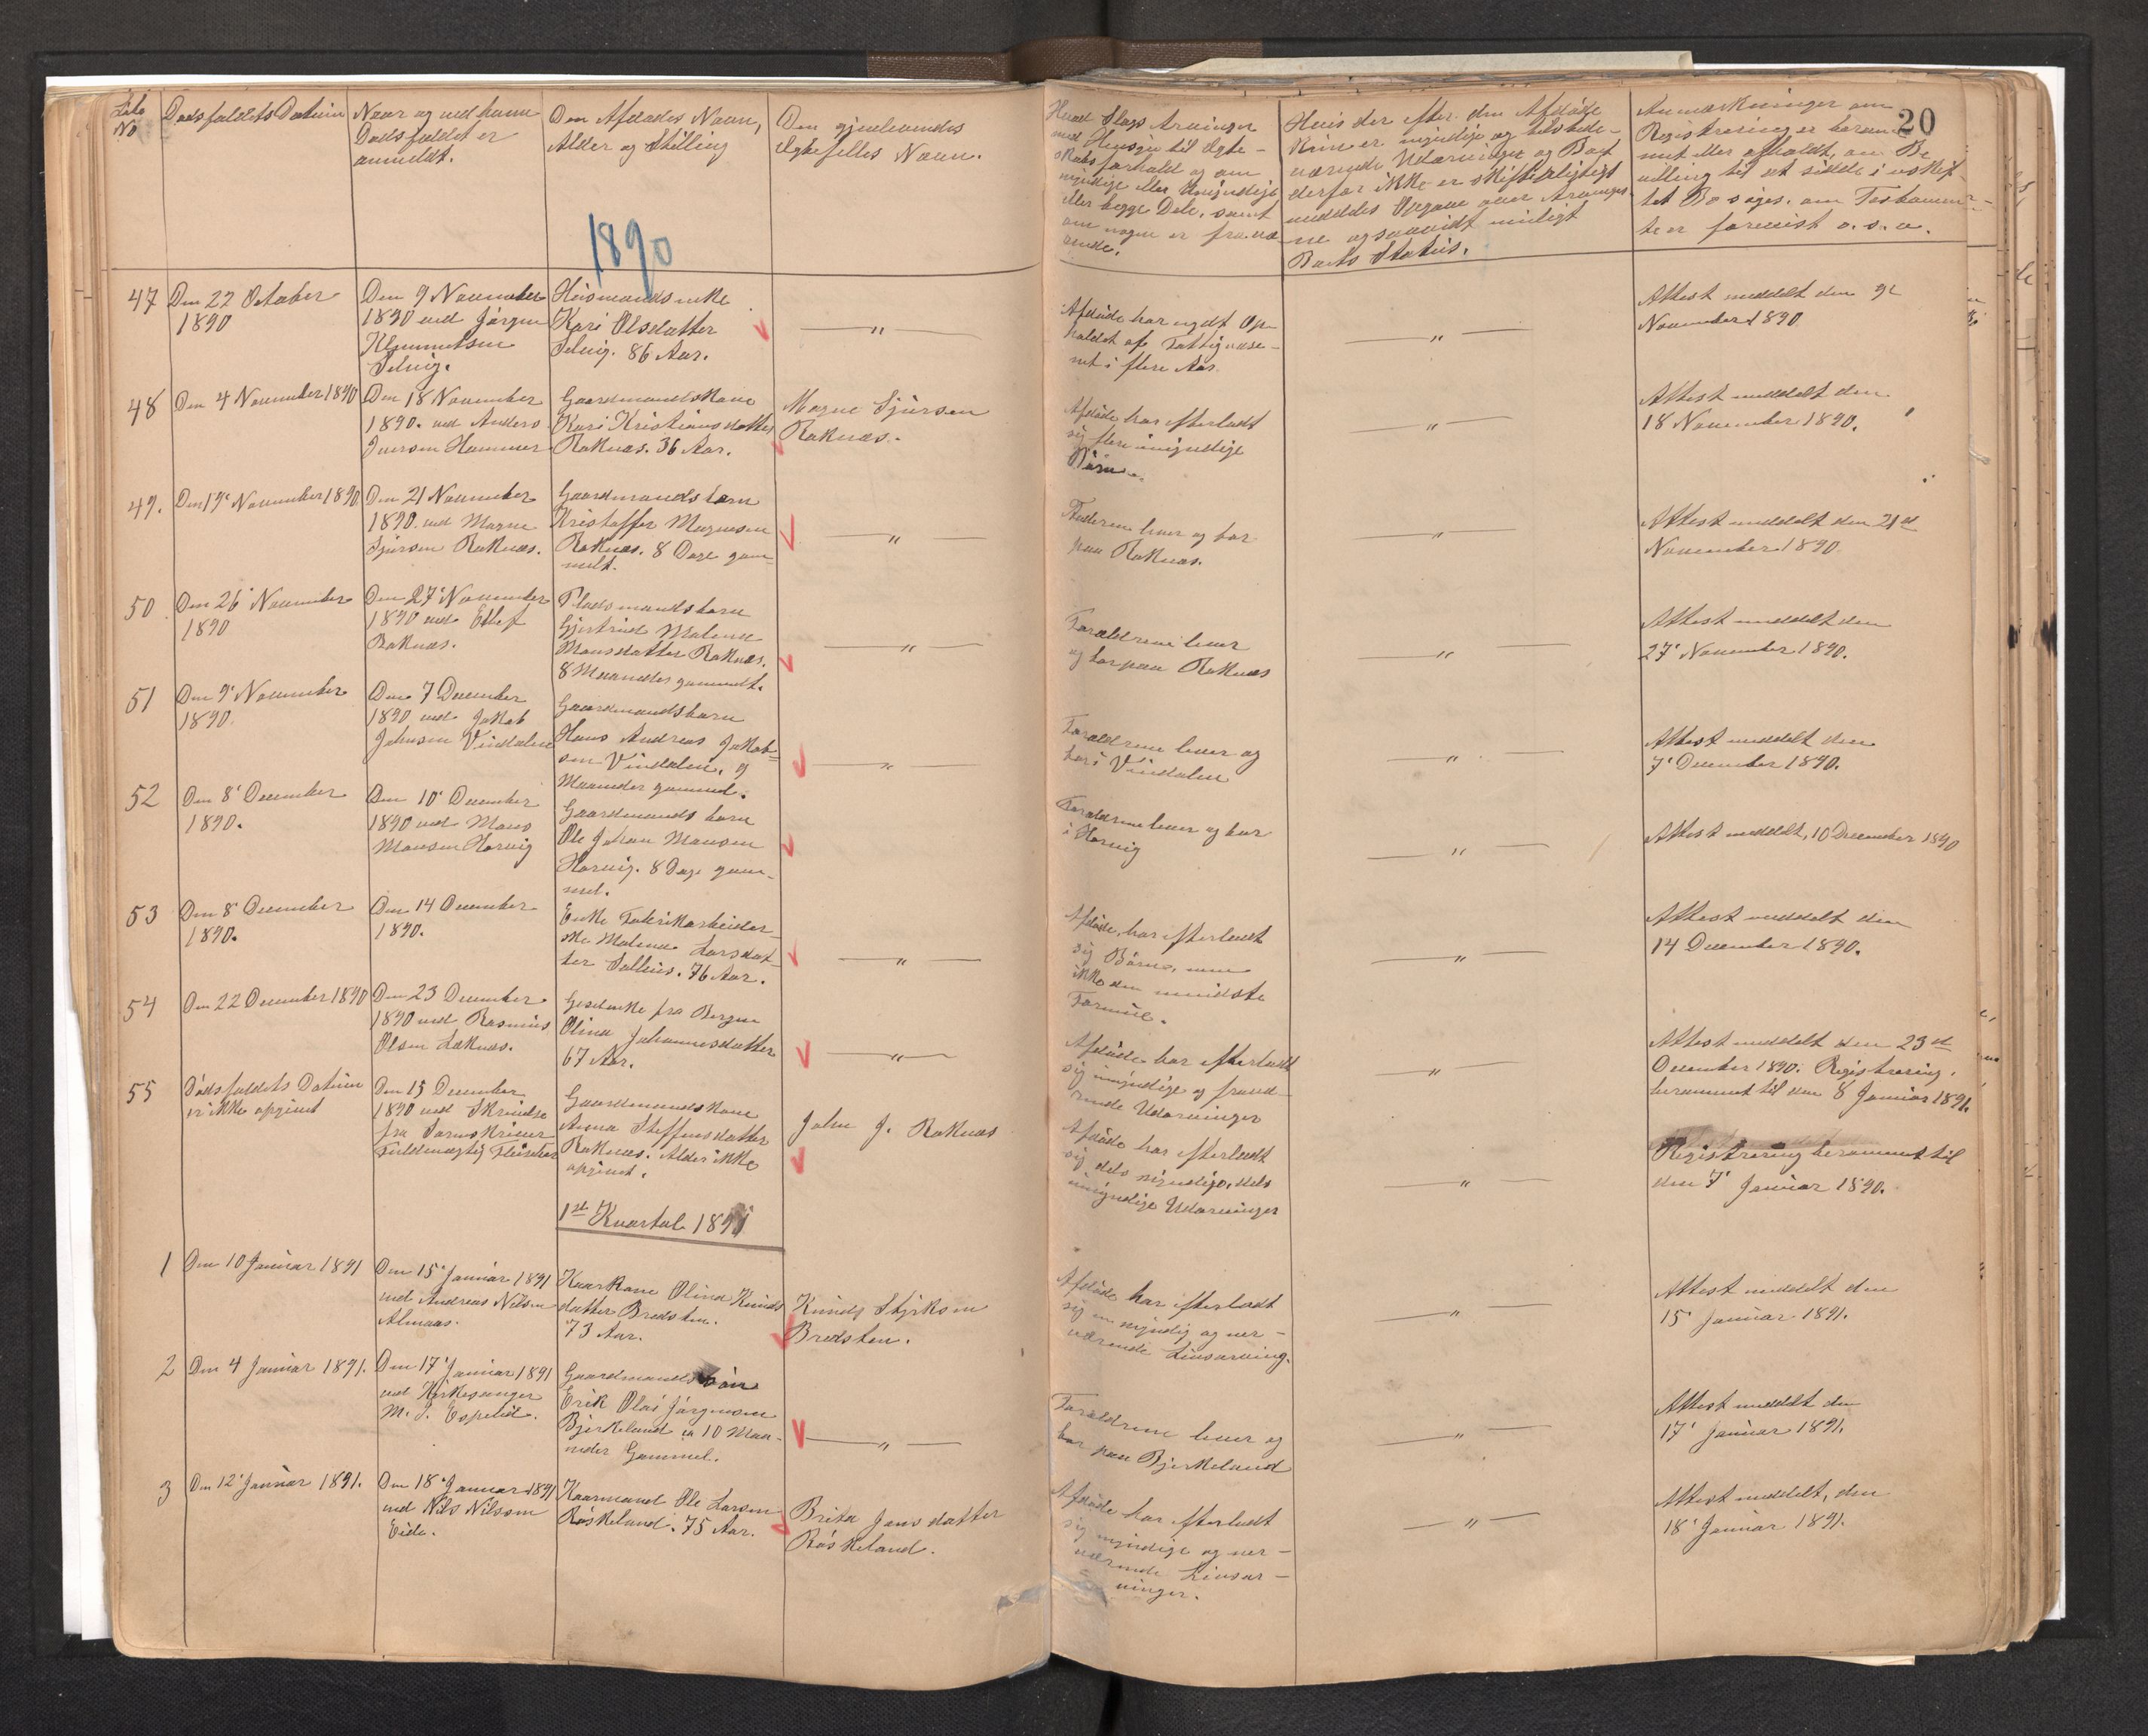 20
Løbe No
Dødsfaldets Datum
Naar og ved hvem
Dødsfaldet er
anmeldt.
Den Afdødes Navn,
Alder og Stilling
Den gjenlevendes
Ægtefelles Navn.
Hvad Slags Arvinger
med Hensyn til Ægte-
skabsforhold og om
myndige eller Umyndige
eller begge Dele, samt
om nogen er fravæ-
rende.
Hvis der efter den Afdøde
kun er myndige og tilstede-
værende Udarvinger og Boet
derfor ikke er skiftepligtigt
meddeles Opgave over Arvinger-
ne og saavidt muligt
Boets Status.
Anmærkninger om
Registrering er beram-
met eller afholdt, om Be-
villing til at sidde i uskif-
tet Bo søges, om Testamen-
ter er forevist o.s.v.
1890
47
Den 22 October
1890
Den 9 November
1890 ved Jørgen
Klemmetsen
Selvig.
Huusmandsenke
Kari Olsdatter
Selvig. 86 Aar.
— " —
Afdøde har nydt Op-
holdt af Fattigvæse-
net i flere Aar.
— " —
Attest meddelt den 9de
November 1890
48
Den 4 November 1890
Den 18 November
1890. ved Anders
Iversen Hammer
Gaardmandskone
Kari Kristiansdatter
Raknæs. 36 Aar.
Magne Sjursen
Raknæs.
Afdøde har efterladt
sig flere umyndige
Børn.
— " —
Attest meddelt den
18 November 1890.
49.
Den 19' November 1890
Den 21 November
1890. ved Magne
Sjursen Raknæs.
Gaardmandsbarn
Kristoffer Magnesen
Raknæs. 8 Dage gam-
melt.
— " —
Faderen lever og bor
paa Raknæs.
— " —
Attest meddelt den 21de
November 1890.
50
Den 26' November
1890
Den 27' November
1890 ved Ellef
Raknæs.
Pladsmandsbarn
Gjertrud Malene
Monsdatter Raknæs.
8 Maaneder gammelt.
— " —
Forældrene lever
og bor paa Raknæs
— " —
Attest meddelt den
27' November 1890.
51
Den 9' November
1890.
Den 7 December
1890 ved Jakob
Johnsen Vindalen
Gaardmandsbarn
Hans Andreas Jakob-
sen Vindalen. 9
Maaneder gammel.
— " —
Forældrene lever og
bor i Vindalen
— " —
Attest meddelt den
7' December 1890.
52
Den 8' December
1890.
Den 10' December
1890 ved Mons
Monsen Horvig
Gaardmands barn
Ole Johan Monsen
Horvig. 8 Dage gam-
mel.
— " —
Forældrene lever og bor
i Horvig
— " —
Attest meddelt, 10 December 1890
53
Den 8' December
1890.
Den 14 December
1890.
Enke Fabrikarbeider-
ske Malene Larsdat-
ter Salhus. 76 Aar.
— " —
Afdøde har efterladt
sig Børn, men
ikke den mindste
Formue.
— " —
Attest meddelt den
14 December 1890.
54
Den 22 December 1890
Den 23 December
1890 ved Rasmus
Olsen Løknæs.
fra Bergen
Olina Johannesdatter
67 Aar.
— " —
Afdøde har efterladt
sig umyndige og fravæ-
rende Udarvinger
— " —
Attest meddelt den 23de
December 1890. Registrering
berammet til den 8 Januar 1891.
55
Dødsfaldets Datum
er ikke opgivet
Den 15 December
1890 ved Skrivelse
fra Sorenskriver
Fuldmægtig
Gaardmandskone
Anna Steffensdatter
Raknæs. Alder ikke
opgivet.
John J. Raknæs
Afdøde har efterladt
sig dels myndige, dels
umyndige Udarvinger
— " —
Registrering berammet til
den 7' Januar 1890.
1ste Kvartal 1891
1
Den 10 Januar 1891
Den 15' Januar 1891
ved Andreas Nilsen
Almaas.
Kaarkone Olina Knuds
datter Bredsten.
73 Aar.
Knud Styrksen
Bredsten.
Afdøde har efterladt
sig en myndig og nær-
værende Livsarving.
— " —
Attest meddelt den
15' Januar 1891.
2
Den 4 Januar 1891.
Den 17' Januar 1891
ved Kirkesanger
M. J. Espelid.
Gaardmandssøn
Erik Olai Jørgensen
Bjerkeland 10 Maa-
neder Gammel.
— " —
Forældrene lever og
bor paa Bjerkeland
— " —
Attest meddelt den
17' Januar 1891.
3
Den 12' Januar 1891.
Den 18' Januar 1891
ved Nils Nilssen
Eide.
Kaarmand Ole Larsen
Røskeland. 75 Aar.
Brita Jansdatter
Røskeland.
Afdøde har efterladt
sig myndige og nær-
værende Livsar-
vinger.
— " —
Attest meddelt, den
18' Januar 1891.